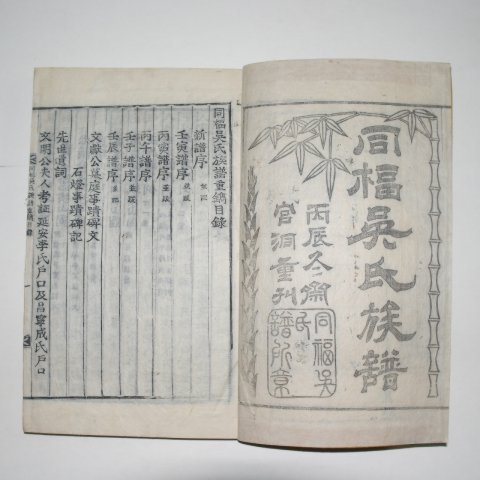 同福吳氏族譜
丙辰冬祭
官洞重刊
同福吳氏譜所章
同福吳氏族譜重鐫目錄
新譜序
壬寅譜序
丙寅譜序
丙午譜序
壬子譜序
壬辰譜序
文獻公墓庭事蹟碑文
石燈事蹟碑記
先世遺詞
文明公夫人考証延安李氏戶口及昌寧成氏戶口